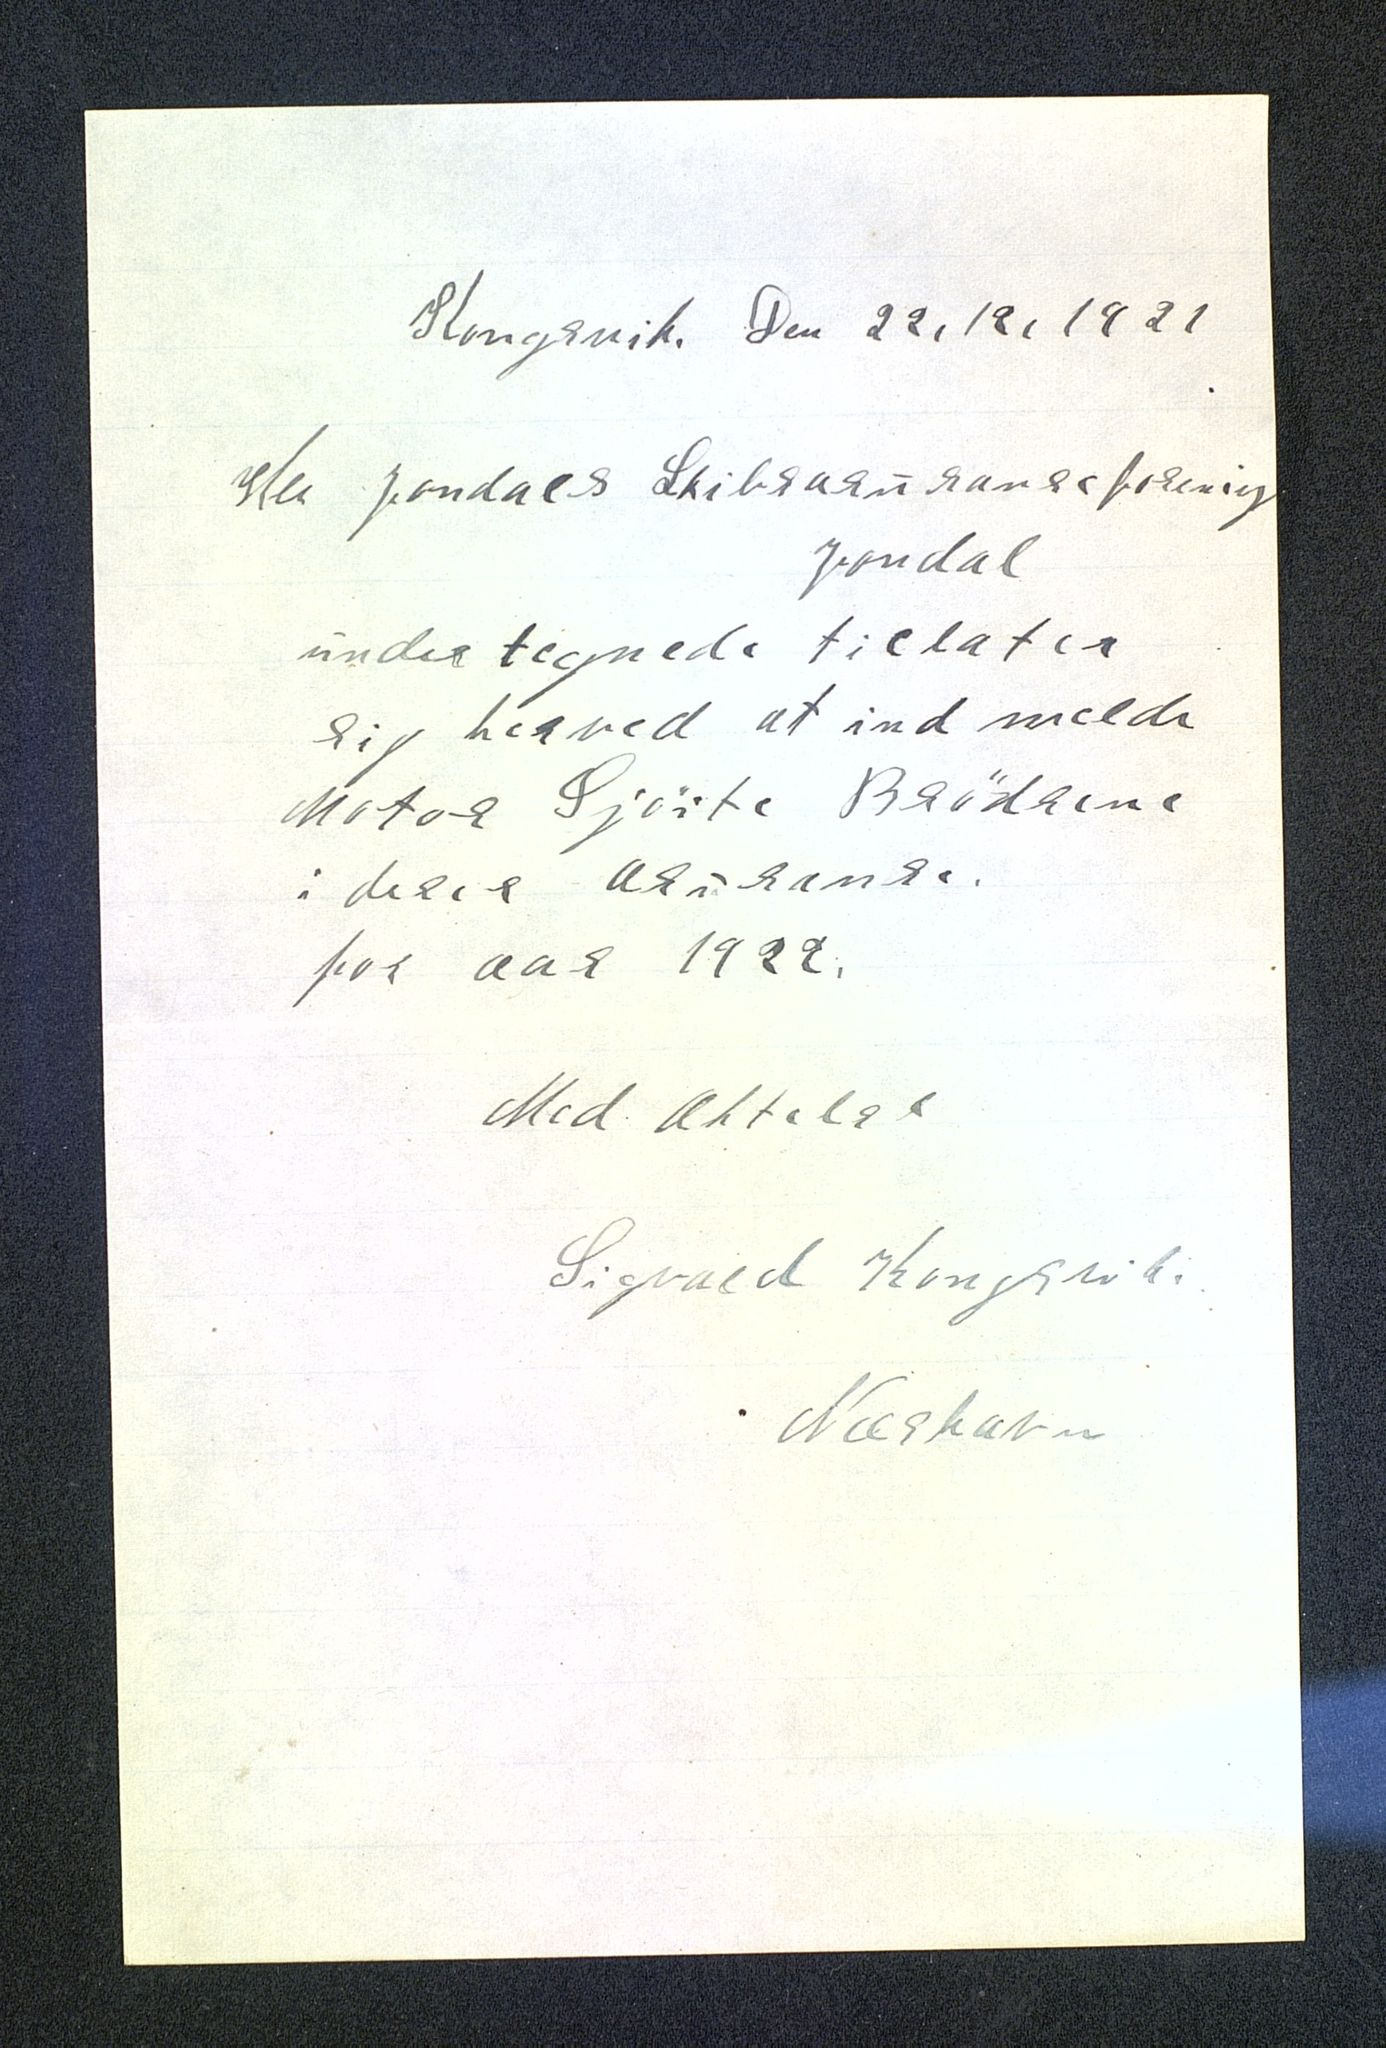 Kongsvik. Den 22.12.1921
Hr Jondals Skibsasuranseforening
Jondal
undertegnede tillater
sig herved at ind melde
Motor Sjöite Brödrene
i deres Asuranse.
for aar 1922.
Med Aktelse
Sigvald Kongsvik.
Næshavn